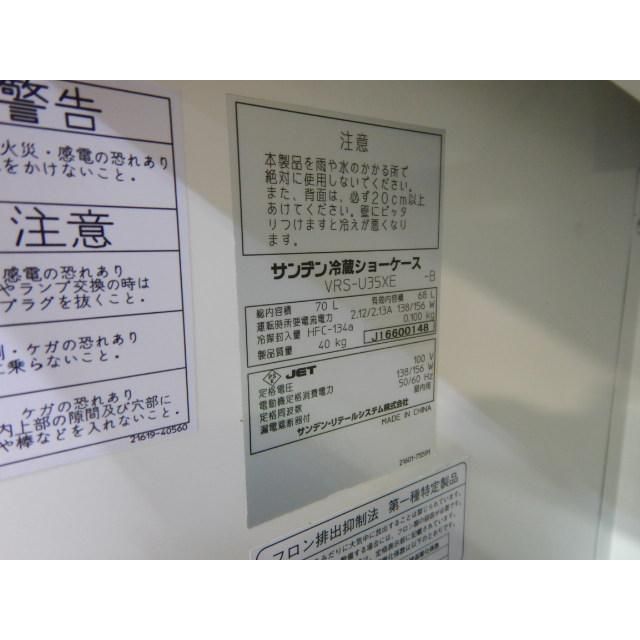 警告
火災・感電の恐れあり
をかけないこと.
注意
感電の恐れあり
やランプ交換の時は
プラグを抜くこと.
・ケガの恐れあり
に乗らないこと.
ケガの恐れあり
内上部の隙間及び穴部に
や棒などを入れないこと.
21619-40560
注意
本製品を雨や水のかかる所で
絶対に使用しないでください.
また、背面は、必ず20cm以上
あけてください. 壁にピッタ
リつけますと冷えが悪くなり
ます.
サンデン冷蔵ショーケース
VRS-U35XE -B
総内容積 70 L 有効内容積 68 L
運転時所要電流電力 2.12/2.13A 138/156 W
冷媒封入量 HFC-134a 0.100 kg
製品質量 40 kg J16600148
JET
定格電圧 100 V
電動機定格消費電力 138/156 W
定格周波数 50/60 Hz
漏電遮断器付 屋内用
サンデン・リテールシステム株式会社
MADE IN CHINA
フロン排出抑制法 第一種特定製品